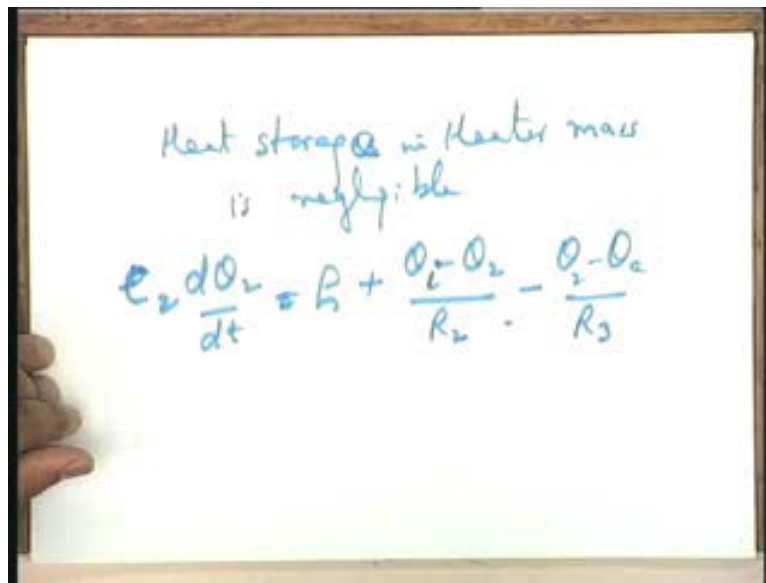 Heat storage in Heater mass
is negligible
C₂ dθ₂/dt = h + (θᵢ - θ₂)/R₂ - (θ₂ - θₐ)/R₃